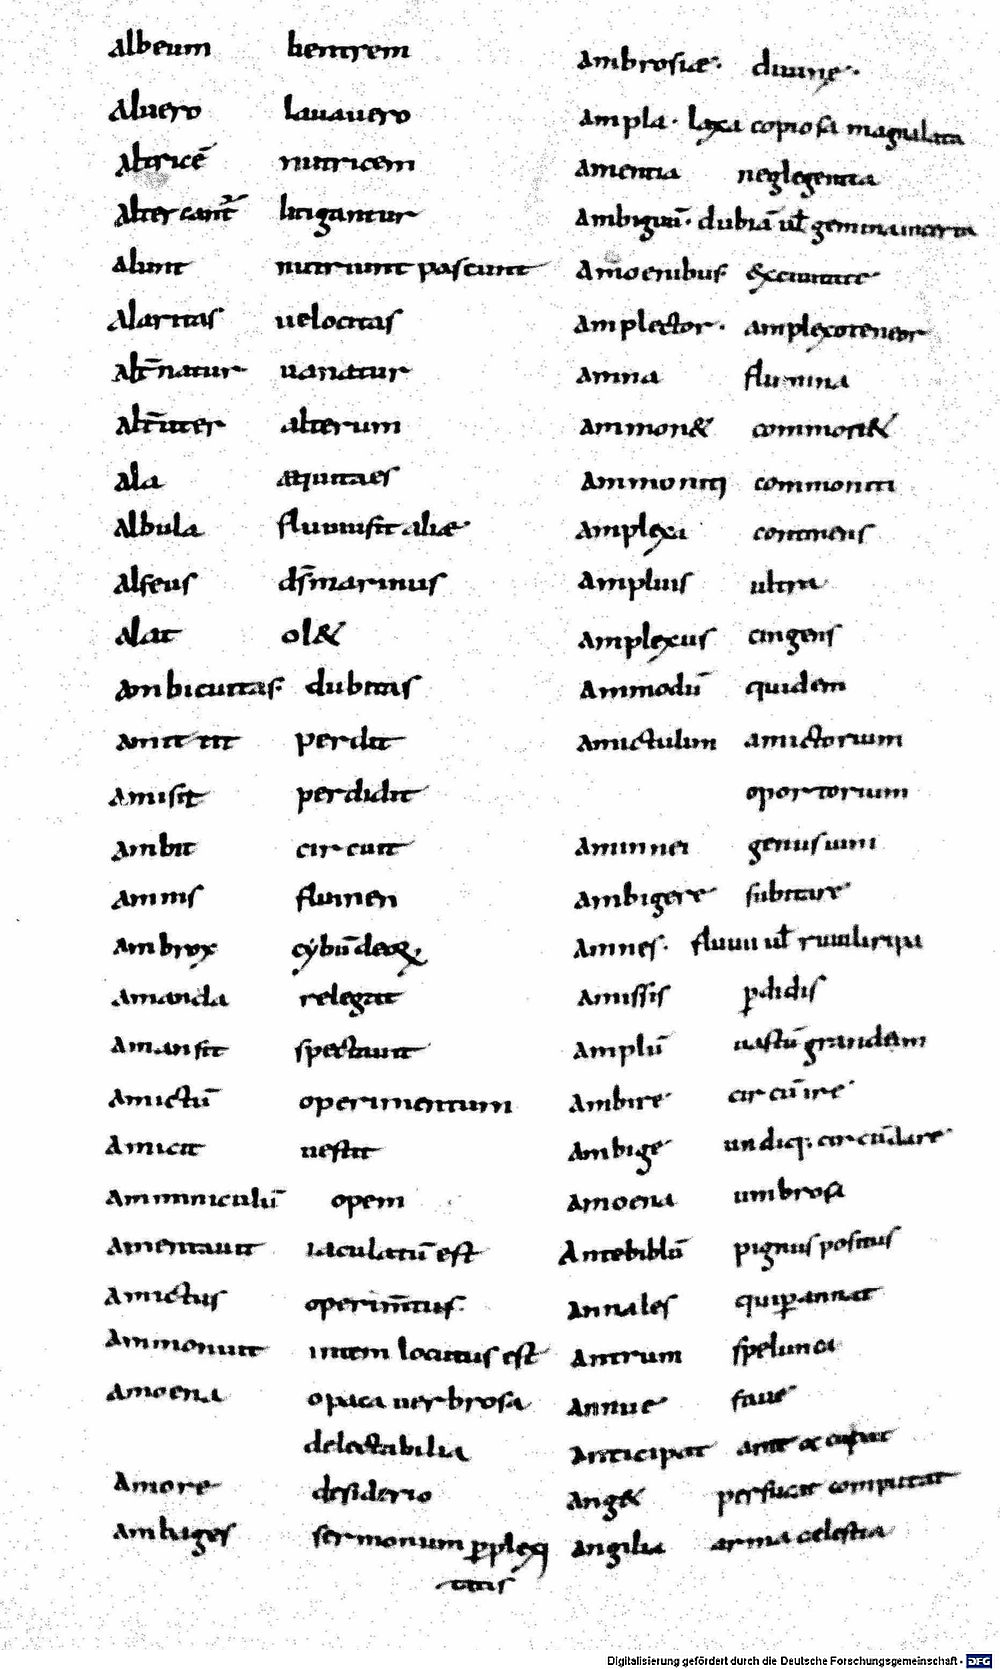 Albeum uentrem
Aluero lauauero
Altricē nutricem
Altercant̄ litigantur
Alunt nutriunt pascunt
Alaritas uelocitas
Alt̄natur uariatur
Alt̄uter alterum
Ala
Albula fluuii sit aliae
Alfeus ds̄ marinus
Alat ol&
Ambicuitas dubitas
Amittit perdit
Amisit perdidit
Ambit circuit
Amnis flumen
Ambrox cybū deoꝝ.
Amanda relegat
Amansit spectauit
Amictū operimentum
Amicit uestit
Amminiculū opem
Amentauit iaculatū est
Amictus operim̄tus
Ammonuit intem locutus est
Amoena opaca uerbrosa
delectabilia
Amore desiderio
Ambages sermonum ꝑplexi
tatis
Ambrosiae. diuine.
Ampla. laxa copiosa magnilata
Amentia neglegentia
Ambiguū. dubiā ul̄ gemina incerta
Amoenibus
Amplector. amplexo teneor
Amna flumina
Ammon& common&
Ammoniti commoniti
Amplexa continens
Ampluis ultra
Amplexus cingens
Ammodū quidem
Amictulum amictorium
oportorium
Aminnei genus uini
Ambigere subitare
Amnes. fluuii ul̄
Amissis ꝑdidis
Amplū uastū grandem
Ambire circūire
Ambige undiq; circūdare
Amoena umbrosa
Antebiblū pignus positus
Annales qui ꝑannat
Antrum spelunca
Annue faue
Anticipat
Ang& perficit computat
Angilia arma celestia
Digitalisierung gefördert durch die Deutsche Forschungsgemeinschaft - DFG